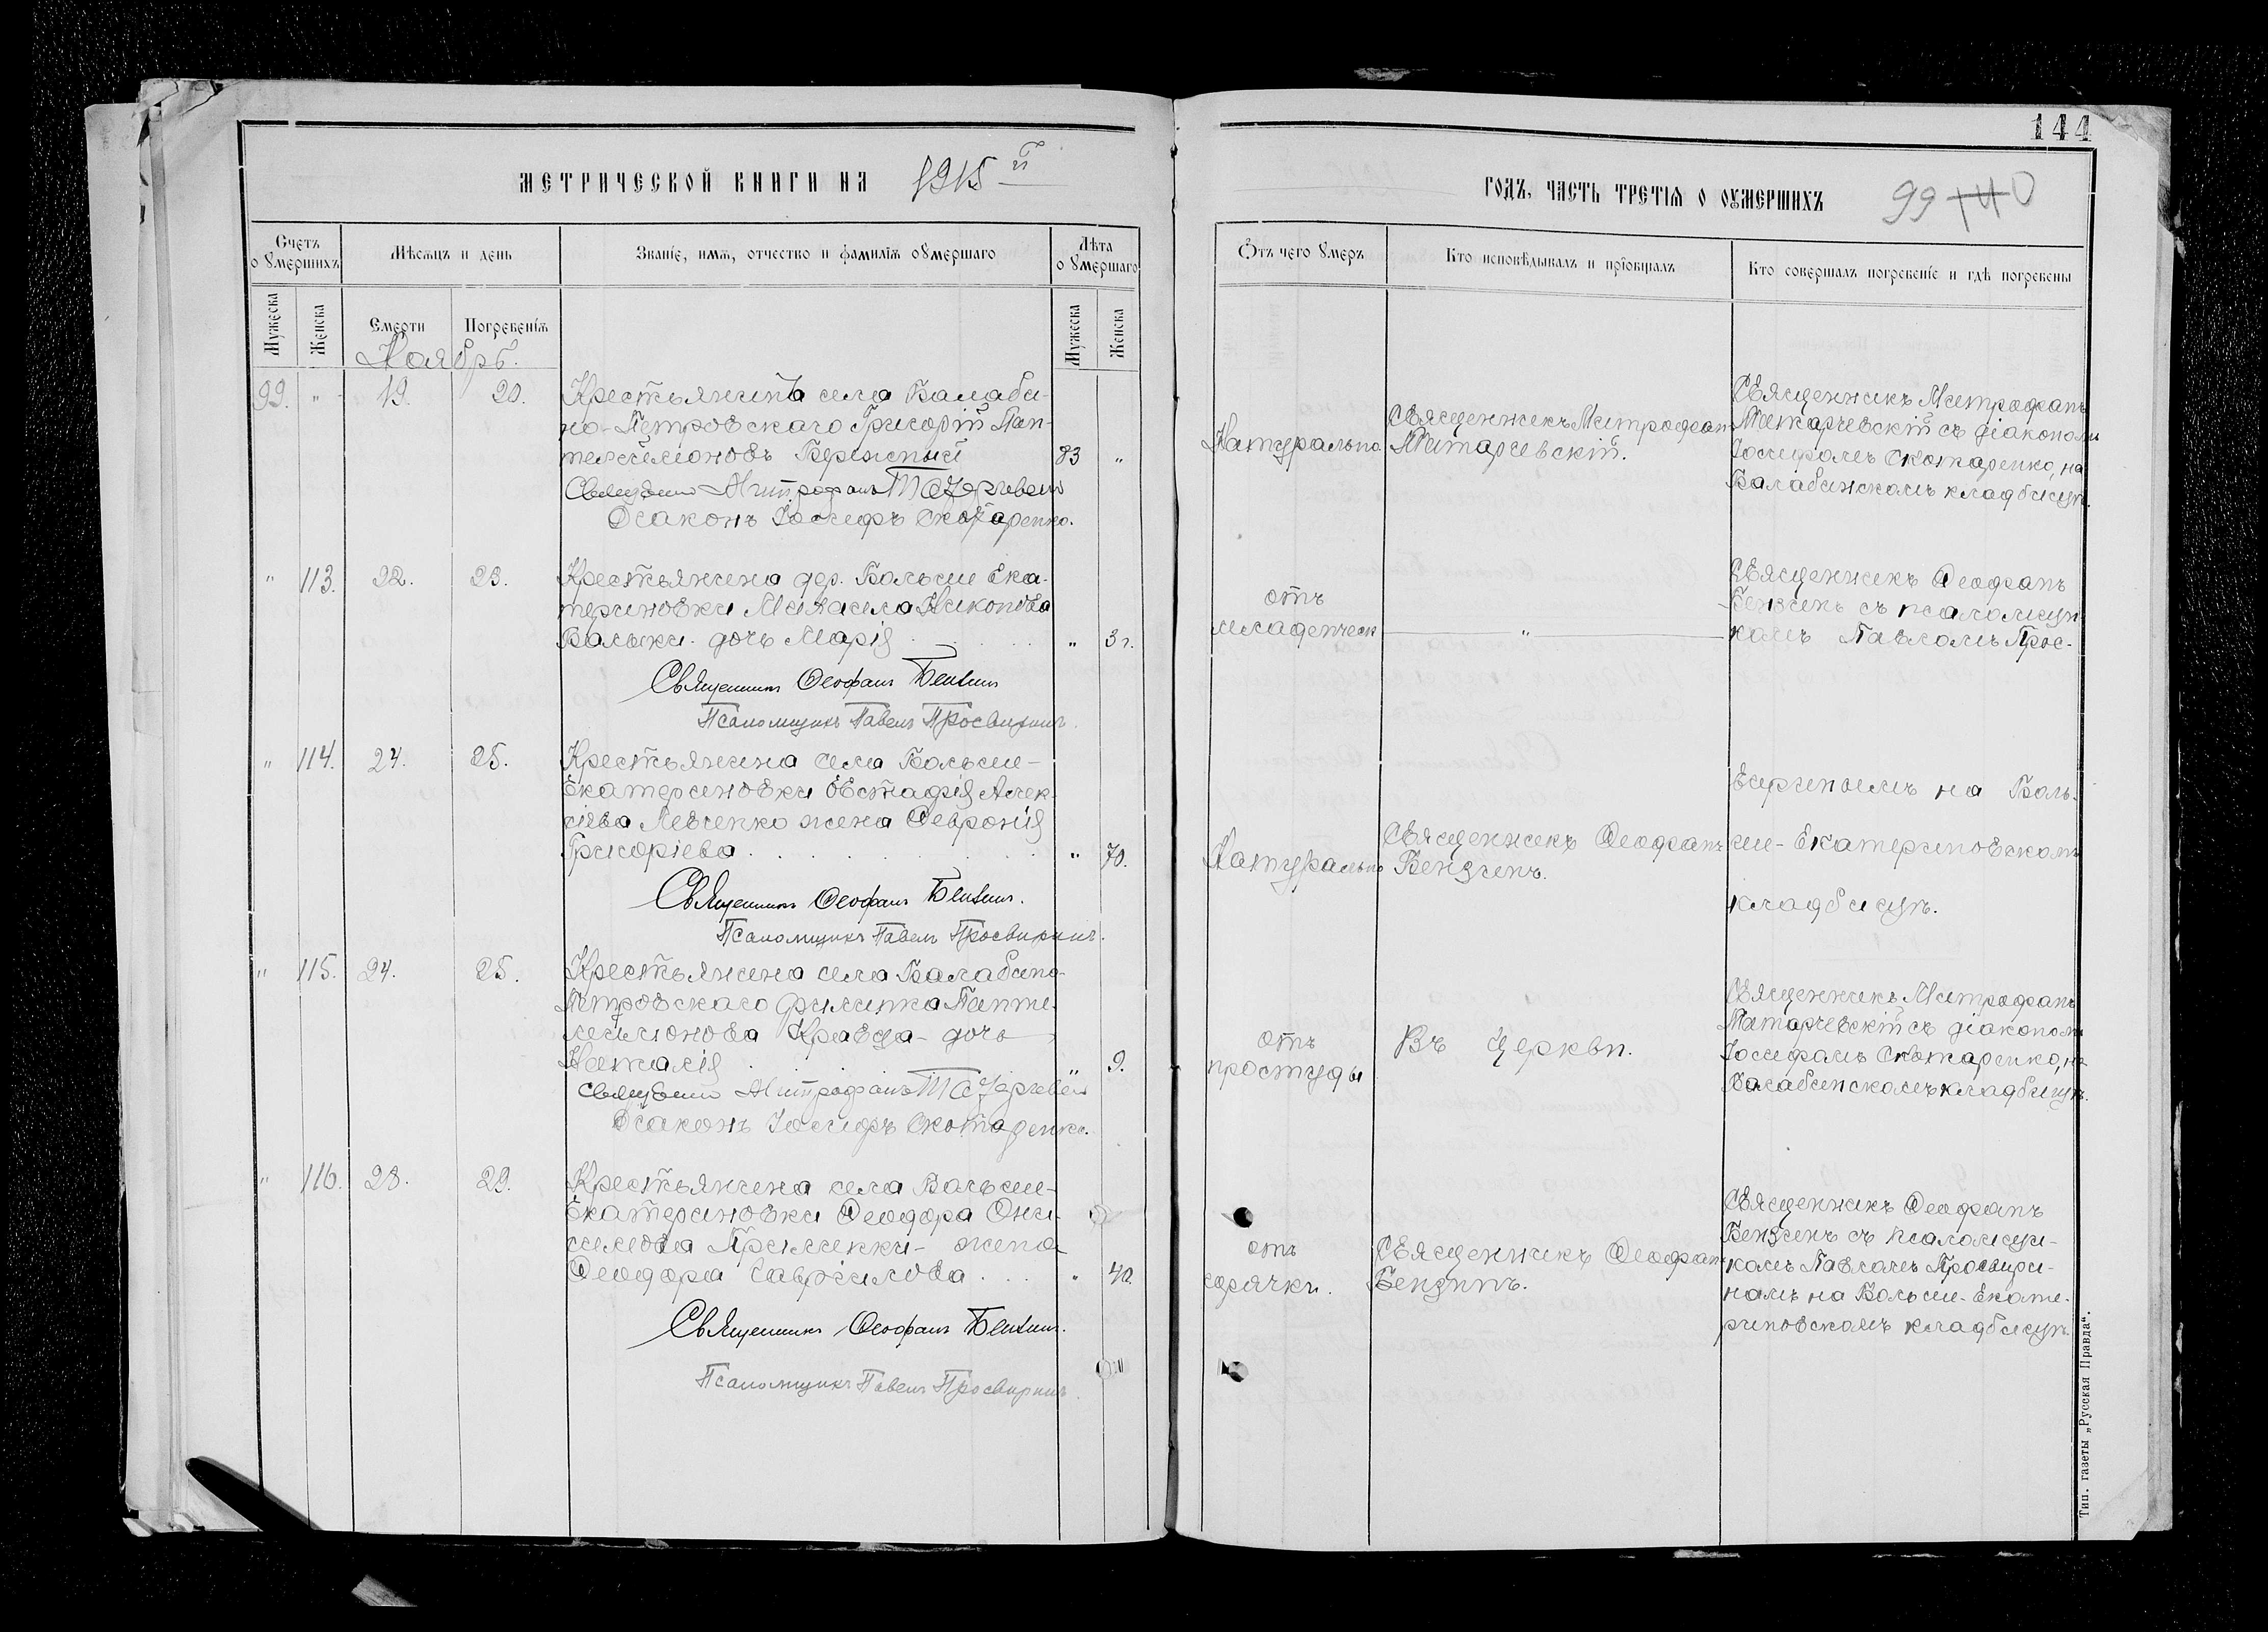 144
МЕТРИЧЕСКОЙ КНИГИ НА 1915 й
ГОДЪ, ЧАСТЬ ТРЕТІЯ О ОУМЕРШИХЪ 99
Счетъ о умершихъ
Мѣсяцъ и день
Званіе, имя, отчество и фамилія оумершаго
Лѣта о умершаго
Отъ чего умеръ
Кто исповѣдывалъ и пріобщалъ
Кто совершалъ погребеніе и гдѣ погребены
Мужеска
Женска
Смерти
Погребенія
Мужеска
Женска
Ноябрь.
99. " 19. 20. Крестьянинъ села Балаби-
но-Петровскаго Григорій Пан-
телеимоновъ Бережный 83 "
Священникъ Митрофанъ
Діаконъ Іосифъ Скотаренко.
Натурально
Священникъ Митрофанъ
Матарчевскій.
Священникъ Митрофанъ
Матарчевскій съ діакономъ
Іосифомъ Скотаренко, на
Балабинскомъ кладбищѣ.
" 113. 22. 23. Крестьянина дер. Больше Ека-
териновки Михаила Никонова
дочь Марія " 3 г.
Священникъ Ѳеофанъ Бензинъ
Псаломщикъ Павелъ Просвиринъ.
отъ
младенческ
"
Священникъ Ѳеофанъ
Бензинъ съ псаломщи-
комъ Павломъ Прос-
" 114. 24. 25. Крестьянина села Больше-
Екатериновки Евстафія Алек-
сіева Левченко жена Ѳевронія
Григоріева " 70.
Священникъ Ѳеофанъ Бензинъ.
Псаломщикъ Павелъ Просвиринъ.
Натурально
Священникъ Ѳеофанъ
Бензинъ.
вириномъ на Боль-
ше-Екатериновскомъ
кладбищѣ.
" 115. 24. 25. Крестьянина села Балабино-
Петровскаго Филиппа Панте-
леимонова Кравца - дочь
Наталія " 9.
Священникъ Митрофанъ
Діаконъ Іосифъ Скотаренко.
отъ
простуды
Въ церкви.
Священникъ Митрофанъ
Матарчевскій съ діакономъ
Іосифомъ Скотаренко, на
Балабинскомъ кладбищѣ.
" 116. 28. 29. Крестьянина села Больше-
Екатериновки Ѳеодора Они-
симова жена
Ѳеодора Гавриилова " 40.
Священникъ Ѳеофанъ Бензинъ.
Псаломщикъ Павелъ Просвиринъ.
отъ
горячки.
Священникъ Ѳеофанъ
Бензинъ.
Священникъ Ѳеофанъ
Бензинъ съ псаломщи-
комъ Павломъ Просвири-
номъ на Больше-Екате-
риновскомъ кладбищѣ.
Тип. газеты „Русская Правда".